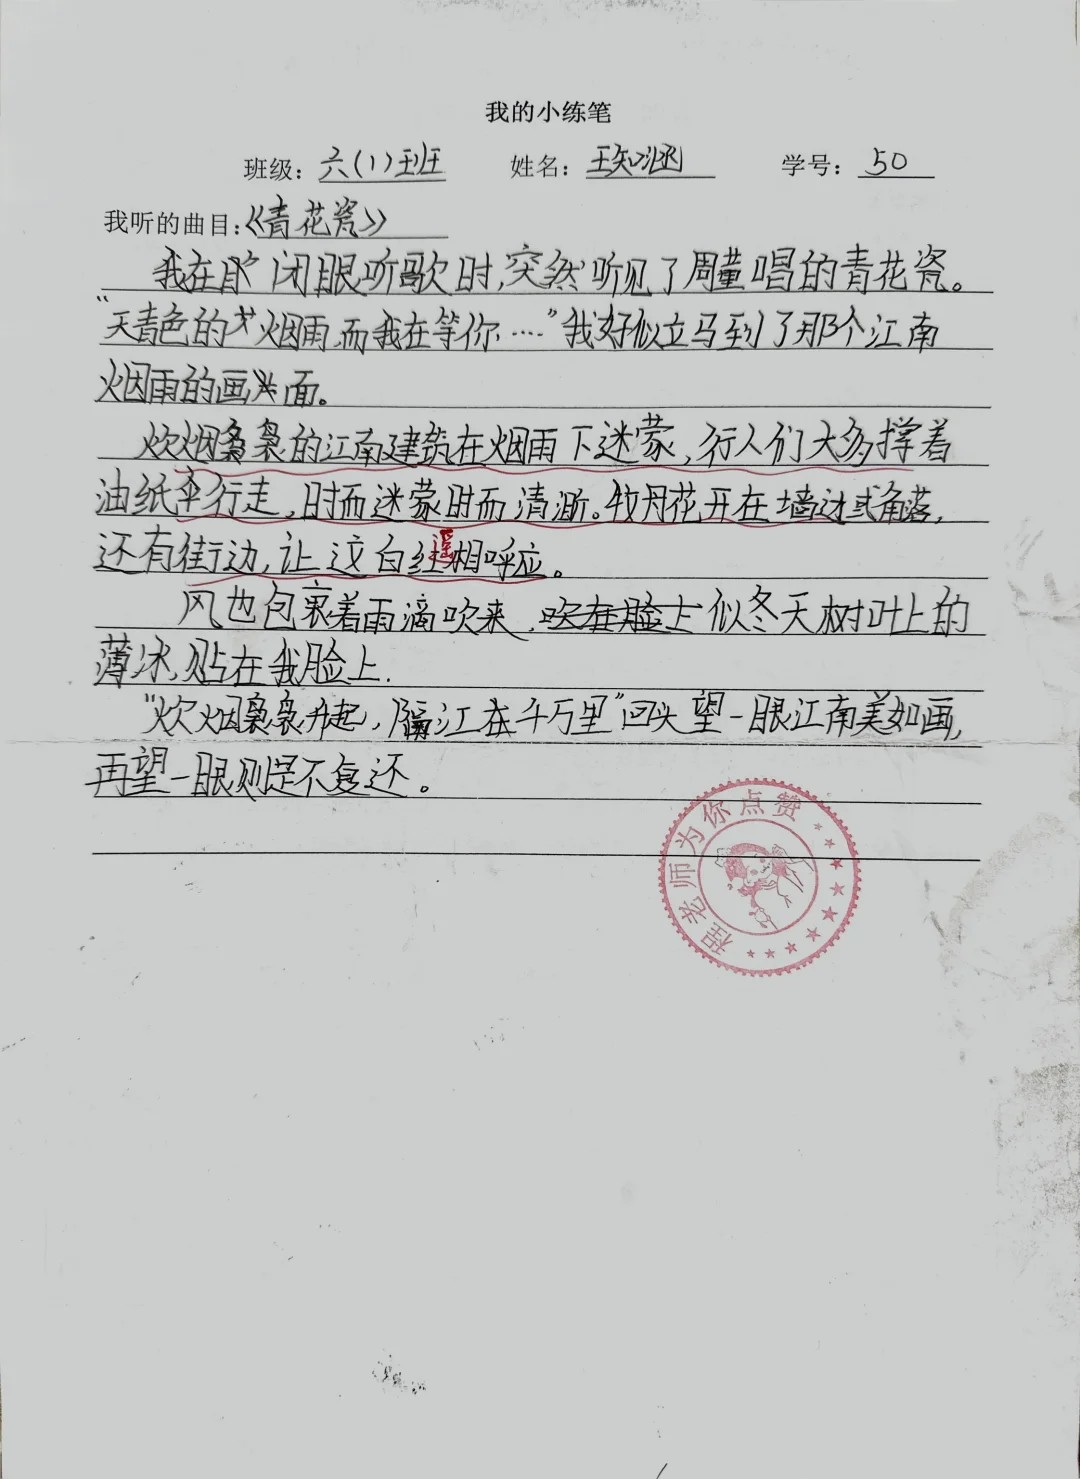 我的小练笔
班级：六(1)班 姓名：王知涵 学号：50
我听的曲目：《青花瓷》
我在 闭眼听歌时,突然听见了周董唱的青花瓷。
“天青色的 烟雨,而我在等你……”我好似立马到了那个江南
烟雨的画 面。
炊烟袅袅的江南建筑在烟雨下迷蒙,行人们大多撑着
油纸伞行走,时而迷蒙时而清晰。牧丹花开在墙边或角落,
还有街边,让这白红遥相呼应。
风也包裹着雨滴吹来,吹在脸上似冬天树叶上的
薄冰,贴在我脸上.
“炊烟袅袅升起,隔江在千万里”回头望一眼江南美如画,
再望一眼则是不复还。
程老师为你点赞